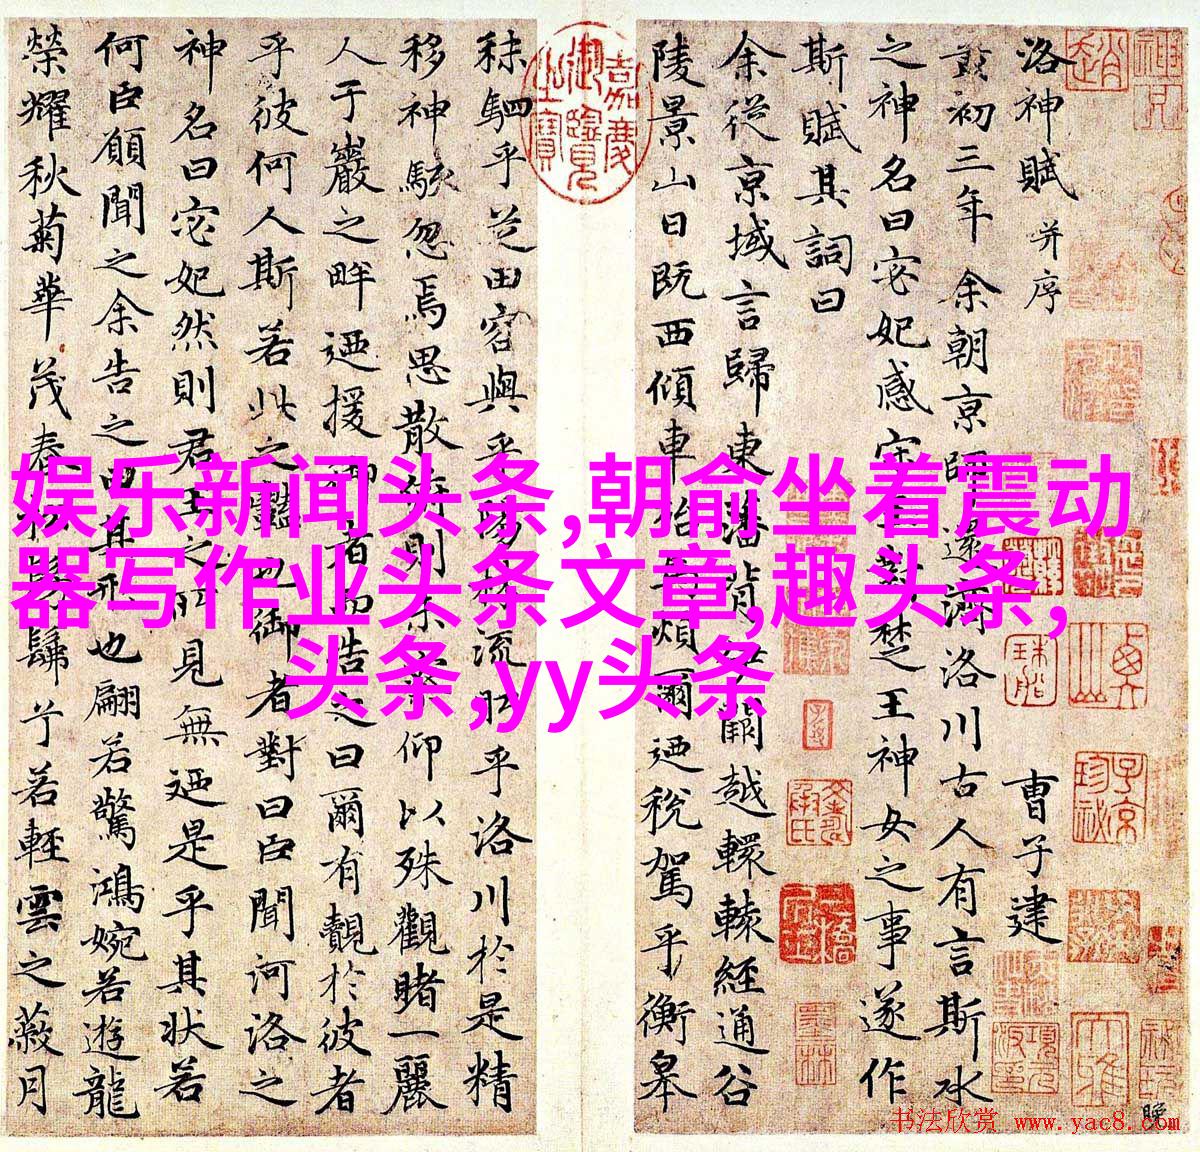 洛神賦 并序
曹子建
黃初三年余朝京師還濟洛川古人有言斯水
之神名曰宓妃感宋玉對楚王神女之事遂作
斯賦其詞曰
余從京域言歸東藩背伊闕越轘轅經通谷
陵景山日既西傾車殆馬煩爾迺稅駕乎衡皋
秣駟乎芝田容與乎陽林流眄乎洛川於是精
移神駭忽焉思散俯則未察仰以殊觀睹一麗
人于巖之畔迺援御者而告之曰爾有覿於彼者
乎彼何人斯若此之豔也御者對曰臣聞河洛之
神名曰宓妃然則君王之所見無迺是乎其狀若
何臣願聞之余告之曰其形也翩若驚鴻婉若遊龍
榮耀秋菊華茂春松髣髴兮若輕雲之蔽月
嘉慶御覽之寶
娱乐新闻头条,朝俞坐着震动
器写作业头条文章,趣头条,
头条,yy头条
晚
书法欣赏 www.yac8.com